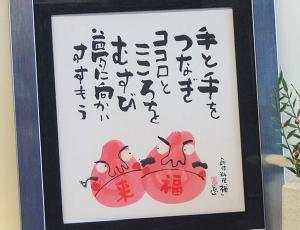 手と手を
つなぎ
ココロと
こころを
むすび
夢に向かい
すすもう
来
福